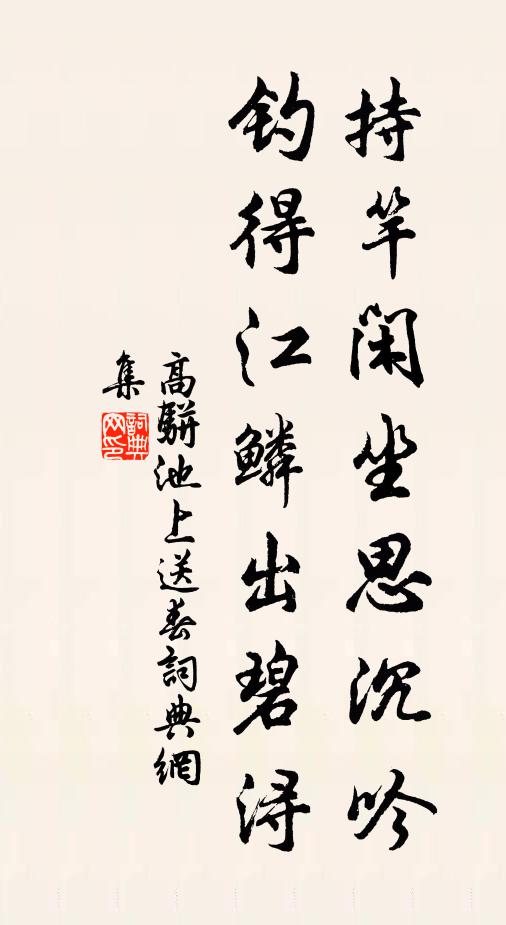 持竿閑坐思沉吟
钓得江鳞出碧浔
高駢池上送春詞典網
集
詞典
网印